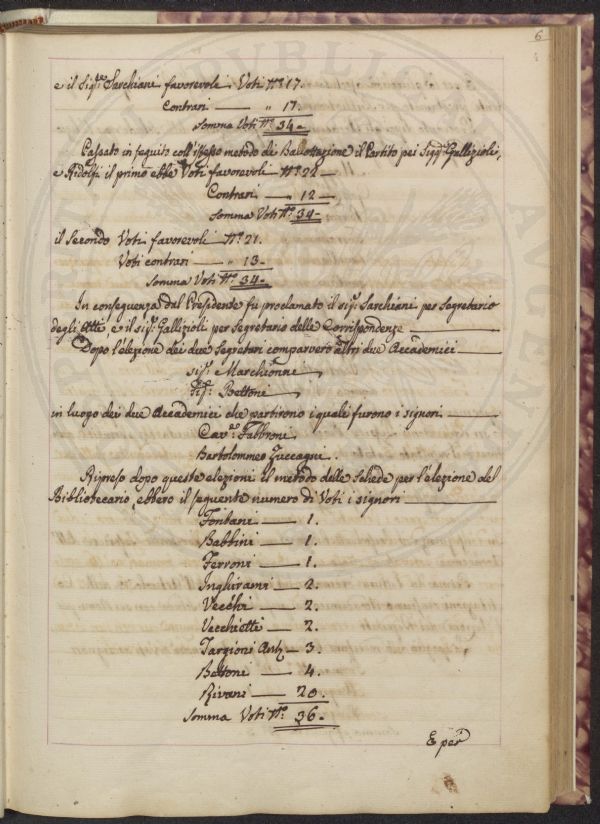 6
e il Sig.r Sarchiani favorevoli Voti N.o 17.
Contrari — „ 17.
Somma Voti N.o 34 -
Passato in seguito coll'istesso metodo di Ballottazione il Partito pei Sigg.ri Gallizioli,
e Ridolfi il primo ebbe Voti favorevoli — N.o 22 —
Contrari — „ 12 —
Somma Voti N.o 34 —
il Secondo Voti favorevoli — N.o 21.
Voti contrari — „ 13 —
Somma Voti N.o 34 —
In conseguenza dal Presidente fu proclamato il sig.r Sarchiani per Segretario
degli Atti, e il sig.r Gallizioli per Segretario delle Corrispondenze —
Dopo l'elezione dei due Segretari comparvero altri due Accademici —
sig.r Marchionni
Sig.r Bettoni
in luogo dei due Accademici che partirono i quali furono i signori —
Cav.re Fabbroni
Bartolommeo Zuccagni.
Ripreso dopo queste elezioni il metodo delle Schede per l'elezione del
Bibliotecario, ebbero il seguente numero di Voti i signori —
Fontani — 1.
Babbini — 1.
Ferroni — 1.
Inghirami — 2.
Vecchi — 2.
Vecchietti — 2.
Targioni Ant. — 3.
Bettoni — 4.
Rivani — 20.
Somma Voti N.o 36 -
E per